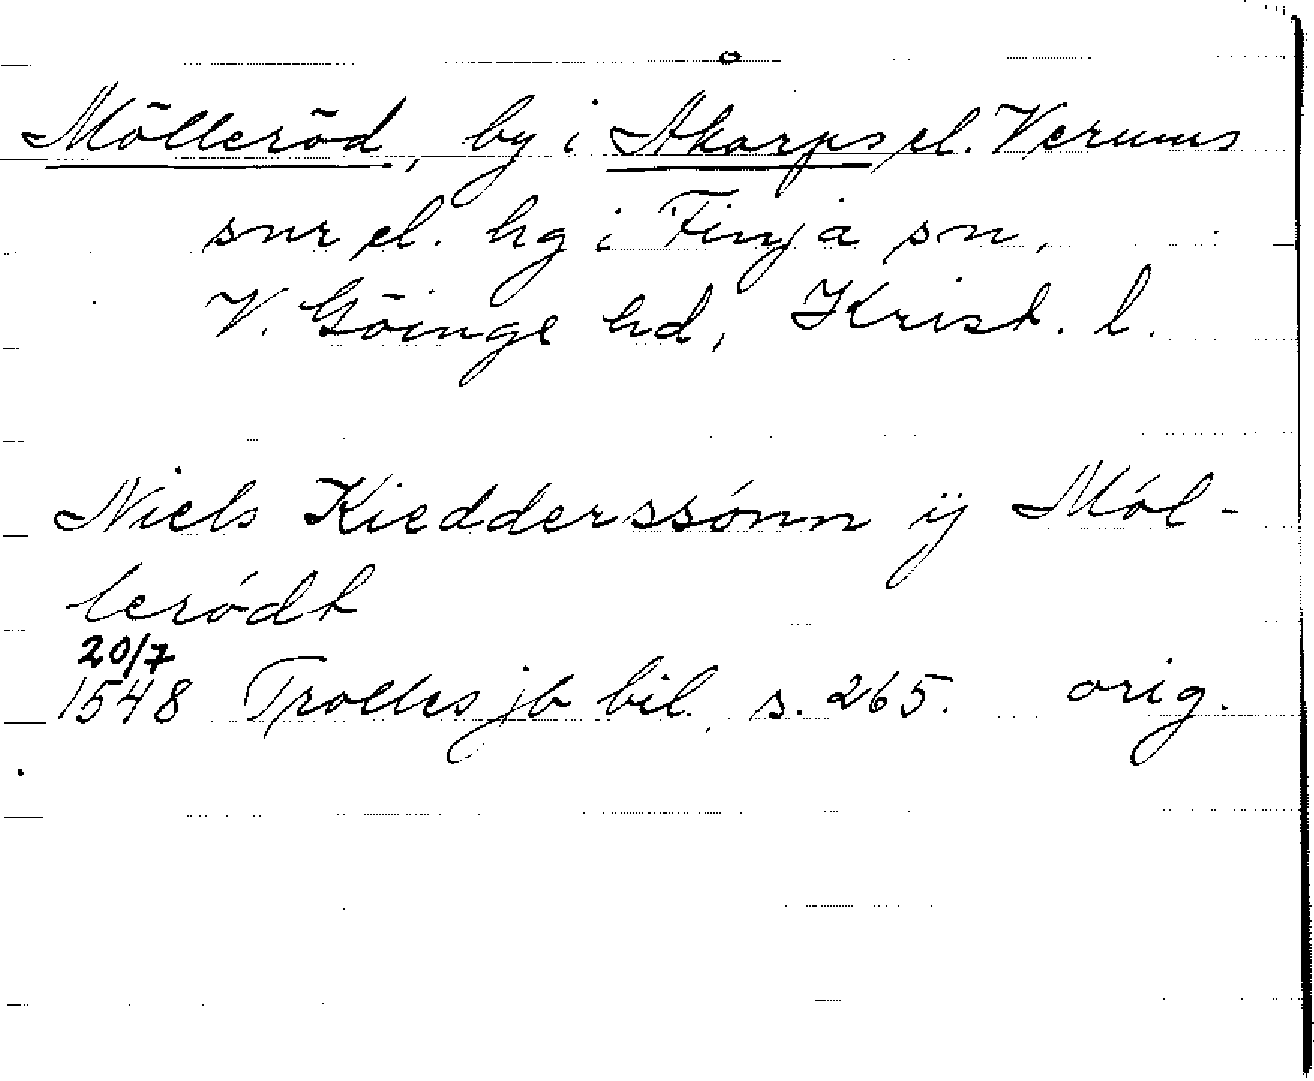 Mölleröd, by i Åkarps el. Verums
snr el. hg i Finja sn,
V. Göinge hd, Krist. l.
Niels Kiedderssónn ÿ Mól-
leródt
20/7
1548 Trolles jb bil. s. 265. orig.